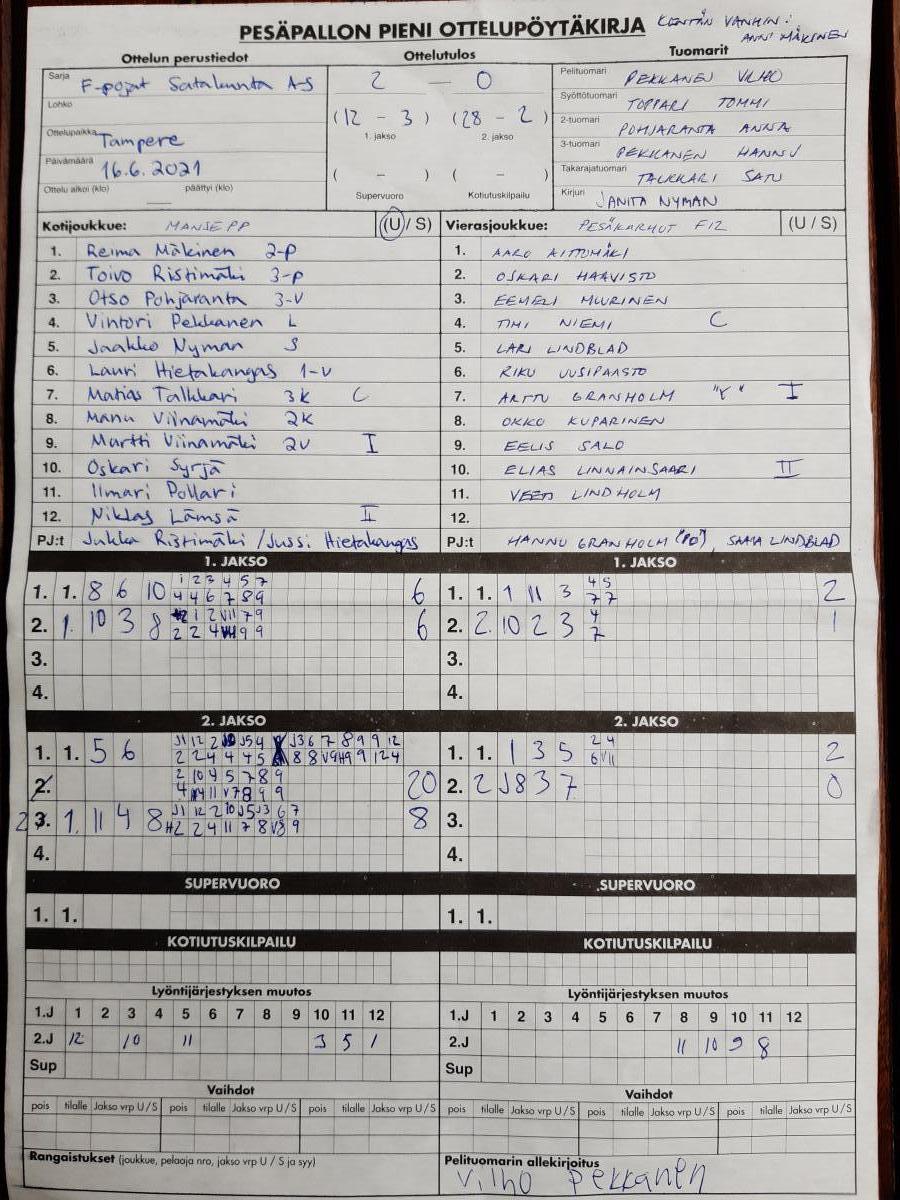 PESÄPALLON PIENI OTTELUPÖYTÄKIRJA KENTÄN VANHIN:
ANNI MÄKINEN
Ottelun perustiedot Ottelutulos Tuomarit
Sarja F-pojat Satakunta A-S 2 — 0 Pelituomari PEKKANEN VILHO
Lohko (12 - 3) (28 - 2) Syöttötuomari TOPPARI TOMMI
Ottelupaikka Tampere 1. jakso 2. jakso 2-tuomari POHJARANTA ANNA
Päivämäärä 16.6.2021 3-tuomari PEKKANEN HANNU
( - ) ( - ) Takarajatuomari TALKKARI SATU
Ottelu alkoi (klo) päättyi (klo) Supervuoro Kotiutuskilpailu Kirjuri JANITA NYMAN
Kotijoukkue: MANSE PP (U / S) Vierasjoukkue: PESÄKARHUT F12 (U / S)
1. Reima Mäkinen 2-p 1. AARO AITTOMÄKI
2. Toivo Ristimäki 3-p 2. OSKARI HAAVISTO
3. Otso Pohjaranta 3-V 3. EEMELI MUURINEN
4. Vintori Pekkanen L 4. TIMI NIEMI C
5. Jaakko Nyman S 5. LARI LINDBLAD
6. Lauri Hietakangas 1-V 6. RIKU UUSIPAASTO
7. Matias Talkkari 3K C 7. ARTTU GRANHOLM "Y" I
8. Manu Viinamäki 2K 8. OKKO KUPARINEN
9. Martti Viinamäki 2V I 9. EELIS SALO
10. Oskari Syrjä 10. ELIAS LINNAINSAARI II
11. Ilmari Pollari 11. VEETI LINDHOLM
12. Niklas Lämsä II 12.
PJ:t Jukka Ristimäki / Jussi Hietakangas PJ:t HANNU GRANHOLM ("PO"), SAARA LINDBLAD
1. JAKSO 1. JAKSO
1. 1. 8 6 10 1 2 3 4 5 7 6 1. 1. 1 11 3 4 5 2
4 4 6 7 8 9 7 7
2. 1. 10 3 8 1 2 VII 7 9 6 2. 2. 10 2 3 4 1
2 2 4 9 9 7
3. 3.
4. 4.
2. JAKSO 2. JAKSO
1. 1. 5 6 J1 12 2 J5 4 J3 6 7 8 9 9 12 1. 1. 1 3 5 2 4 2
2 2 4 4 4 5 8 8 V9 H9 9 12 4 6 VII
2. 2 10 4 5 7 8 9 20 2. 2 J8 3 7 0
4 11 V7 8 9 9
2 3. 1. 11 4 8 J1 12 2 10 J5 J3 6 7 8 3.
H2 2 4 11 7 8 V8 9
4. 4.
SUPERVUORO SUPERVUORO
1. 1. 1. 1.
KOTIUTUSKILPAILU KOTIUTUSKILPAILU
Lyöntijärjestyksen muutos Lyöntijärjestyksen muutos
1.J 1 2 3 4 5 6 7 8 9 10 11 12 1.J 1 2 3 4 5 6 7 8 9 10 11 12
2.J 12 10 11 3 5 1 2.J 11 10 9 8
Sup Sup
Vaihdot Vaihdot
pois tilalle Jakso vrp U / S pois tilalle Jakso vrp U / S pois tilalle Jakso vrp U / S pois tilalle Jakso vrp U / S pois tilalle Jakso vrp U / S pois tilalle Jakso vrp U / S
Rangaistukset (joukkue, pelaaja nro, jakso vrp U / S ja syy) Pelituomarin allekirjoitus
Vilho Pekkanen